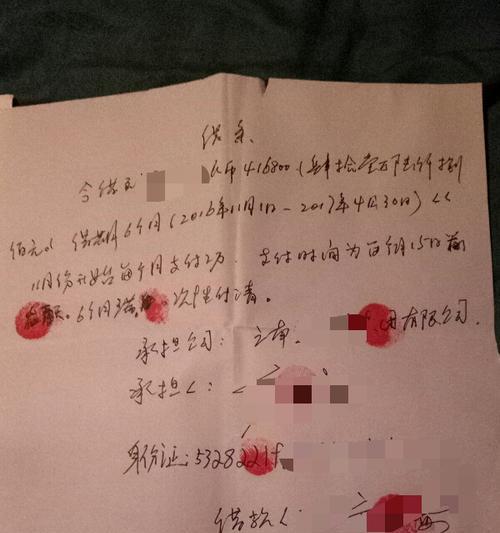 借条
今借到 人币416800（肆拾壹万陆仟捌
佰元）。借期6个月（2016年11月1日—2017年4月30日）
11月份开始每个月支付2万。支付时间为每个月15日前
6个月 次性付清。
承担公司：云南 有限公司.
承担人：
身份证：5328221
借款人：